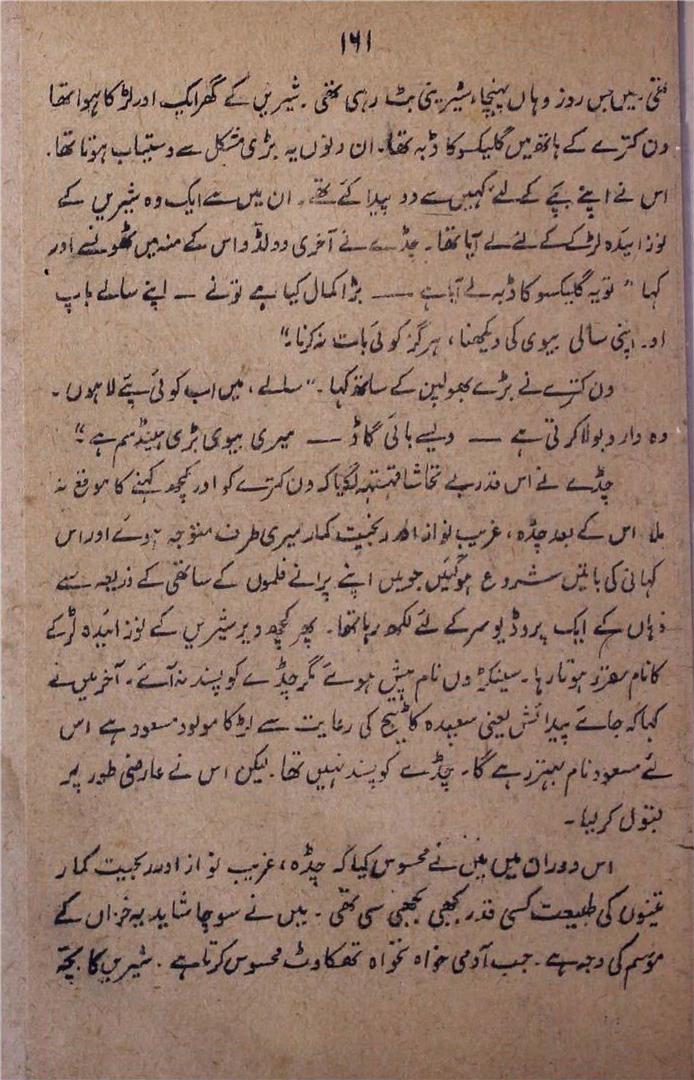 ۱۶۱
تھی۔ میں جس روز وہاں پہنچا، شیرینی بٹ رہی تھی۔ شیریں کے گھر ایک اور لڑکا ہوا تھا
ون کترے کے ہاتھ میں گلیکسو کا ڈبہ تھا۔ ان دنوں یہ بڑی مشکل سے دستیاب ہوتا تھا۔
اس نے اپنے بچے کے لئے کہیں سے دو پیدا کئے تھے۔ ان میں سے ایک وہ شیریں کے
نوزائیدہ لڑکے کے لئے لے آیا تھا۔ چڈے نے آخری دو لڈو اس کے منہ میں ٹھونسے اور
کہا ” تو یہ گلیکسو کا ڈبہ لے آیا ہے —— بڑا کمال کیا ہے تو نے — اپنے سالے باپ
اور اپنی سالی بیوی کی دیکھنا، ہرگز کوئی بات نہ کرنا۔“
ون کترے نے بڑے بھولپن کے ساتھ کہا۔ ”سالے، میں اب کوئی پئے لا ہوں۔
وہ دارو بولا کرتی ہے —— ویسے بائی گاڈ —— میری بیوی بڑی ہینڈسم ہے“
چڈے نے اس قدر بے تحاشا قہقہہ لگایا کہ ون کترے کو اور کچھ کہنے کا موقع نہ
ملا اس کے بعد چڈہ، غریب نواز اور رنجیت کمار میری طرف متوجہ ہوئے اور اس
کہانی کی باتیں شروع ہوگئیں جو میں اپنے پرانے فلموں کے ساتھی کے ذریعہ سے
وہاں کے ایک پروڈیوسر کے لئے لکھ رہا تھا۔ پھر کچھ دیر شیریں کے نوزائیدہ لڑکے
کا نام مقرر ہوتا رہا۔ سینکڑوں نام پیش ہوئے مگر چڈے کو پسند نہ آئے۔ آخر میں نے
کہا کہ جائے پیدائش یعنی سعیدہ کاٹیج کی رعایت سے لڑکا مولود مسعود ہے اس
لئے مسعود نام بہتر رہے گا۔ چڈے کو پسند نہیں تھا۔ لیکن اس نے عارضی طور پر
قبول کر لیا۔
اس دوران میں میں نے محسوس کیا کہ چڈہ، غریب نواز اور رنجیت کمار
تینوں کی طبیعت کسی قدر بجھی بجھی سی تھی۔ میں نے سوچا شاید یہ خزاں کے
موسم کی وجہ ہے۔ جب آدمی خواہ نخواہ تھکاوٹ محسوس کرتا ہے۔ شیریں کا بچہ